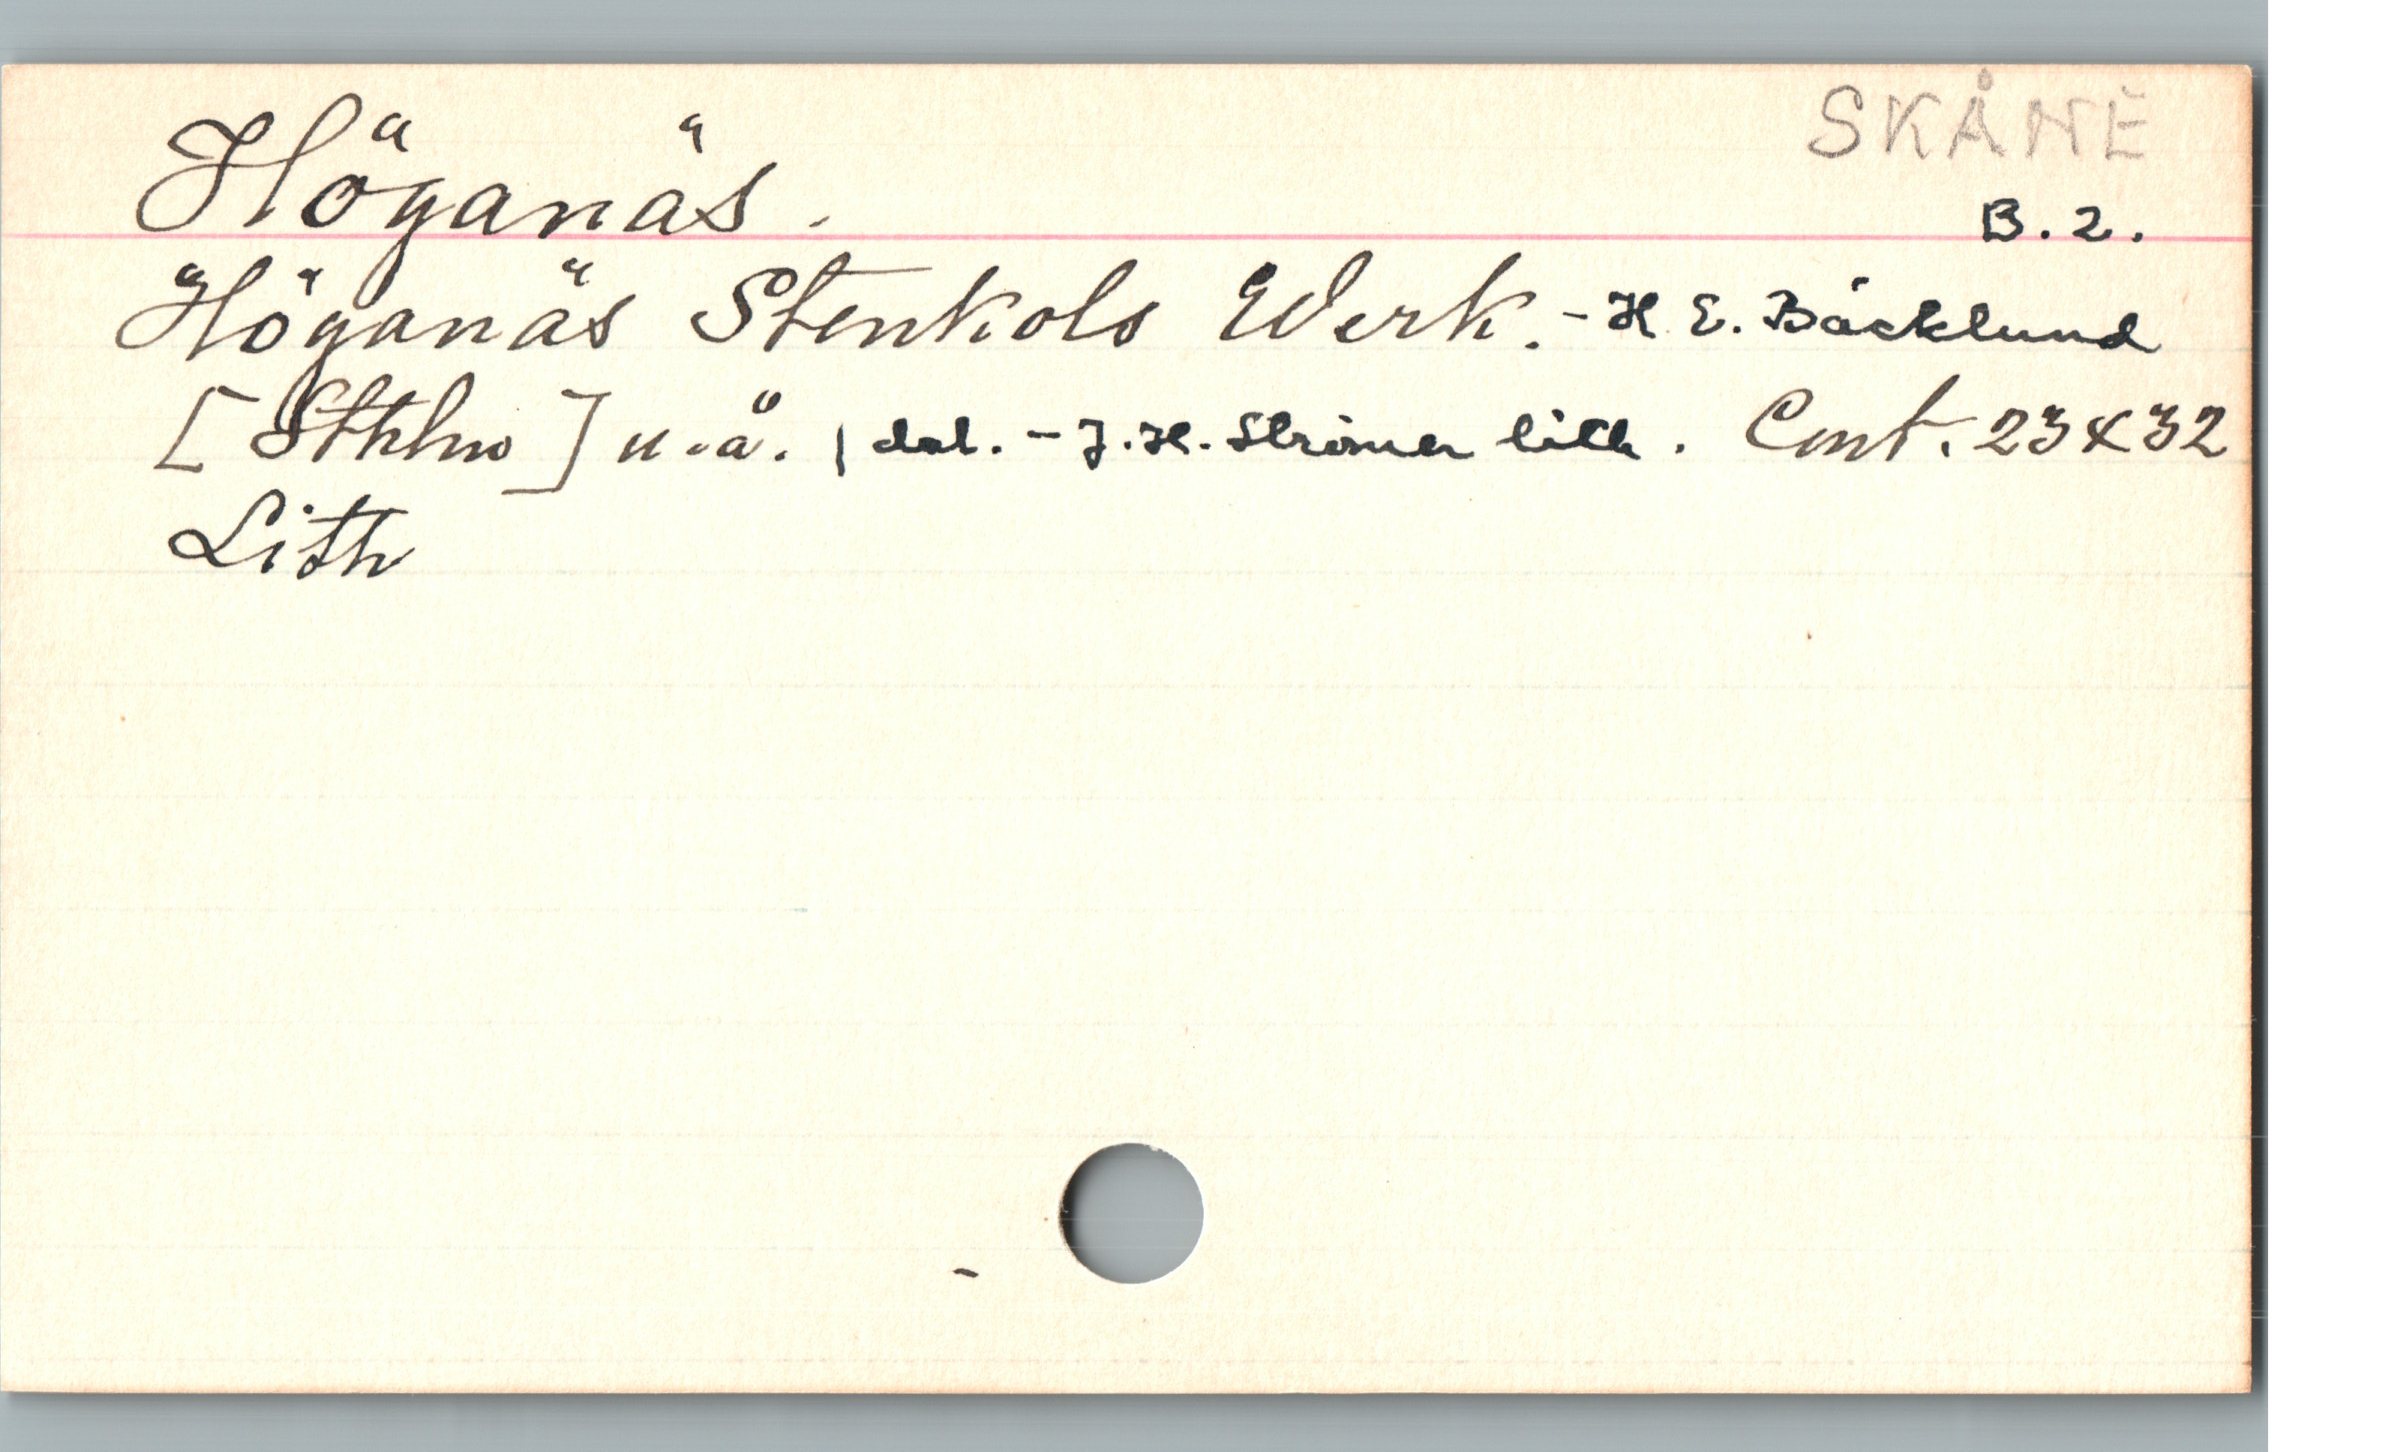 SKÅNE
Höganäs.
B. 2.
Höganäs Stenkols Werk. - H. E. Bäcklund
[Sthlm] u.å. | del. - J. H. Strömer lith. Cent. 23x32
Lith